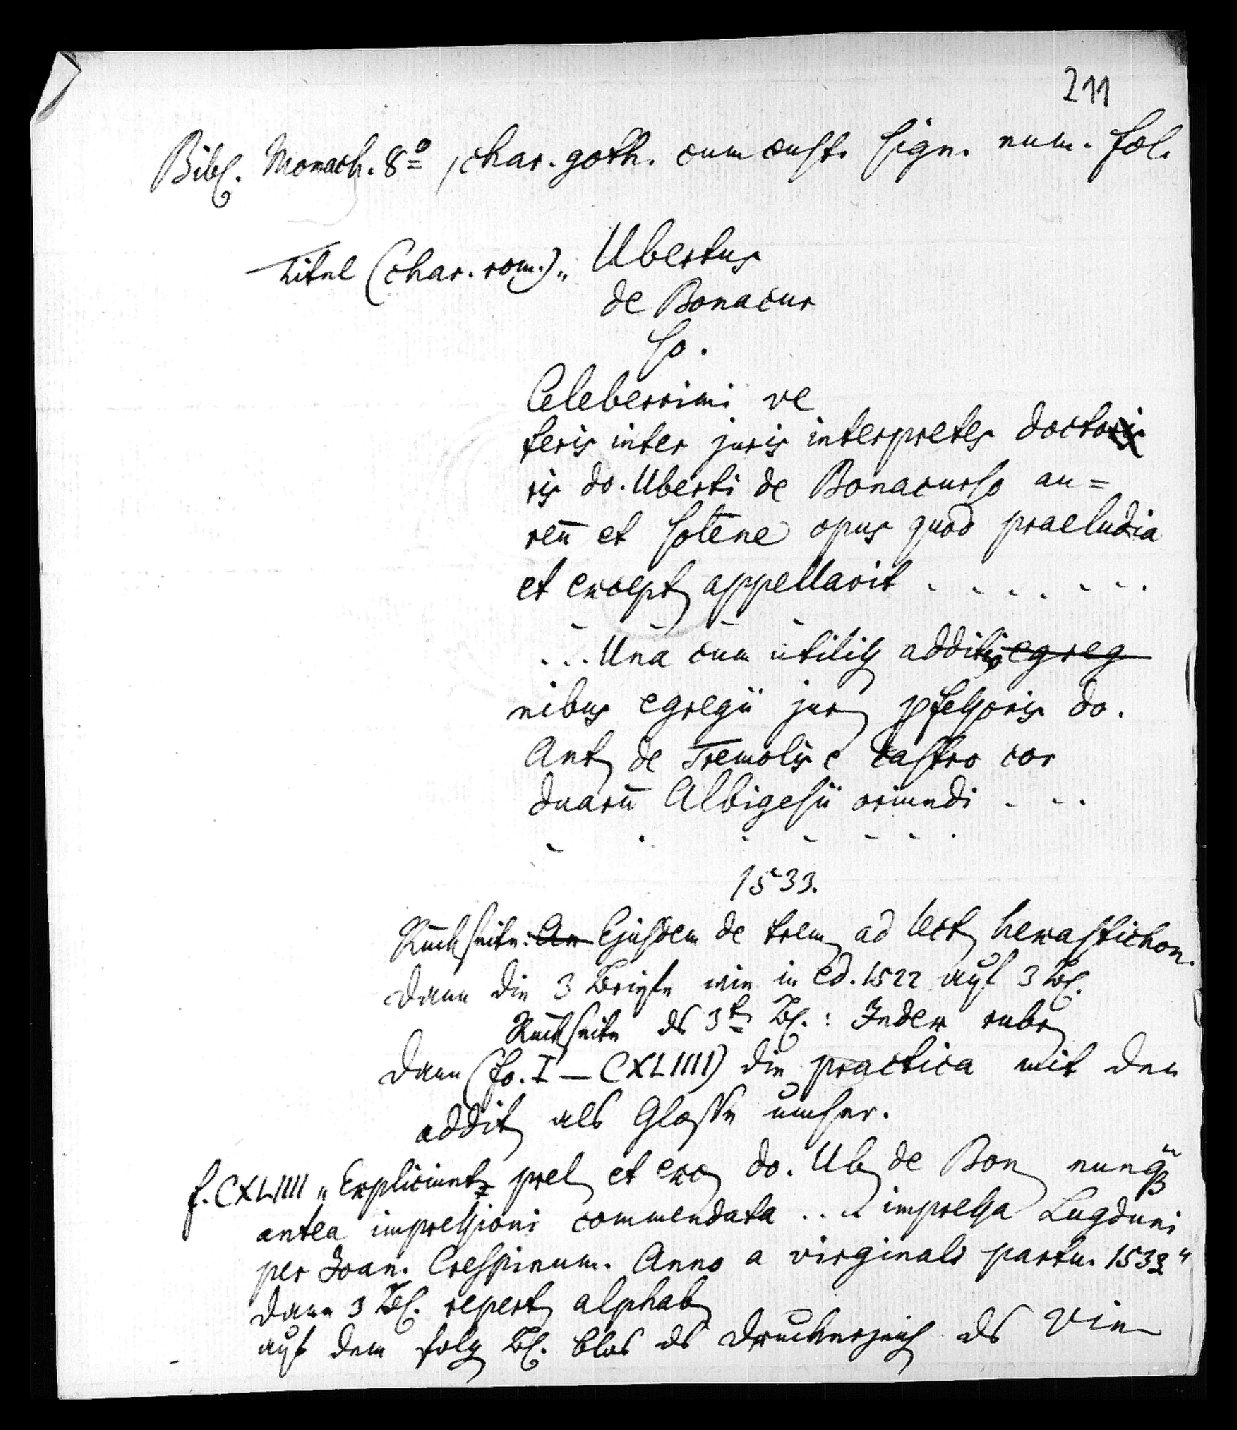 211
Bibl. Monach. 8º, char. goth. cum cust. sign. num. fol.
Titel (char. rom.) „ Ubertus
de Bonacur
so.
Celeberrimi ve
teris inter juris interpretes docto
ris do. Uberti de Bonacurso au=
reū et solēne opus quod praeludia
et except appellavit . . . . . . .
. . . Una cum utiliss additio
nibus egregii jur pfessoris do.
Ant de Tremolis e Castro cor
duarū Albigesii oriundi . . .
1533.
Rückseite: Ejusdem de trem ad lect hexastichon.
Dann die 3 Briefe wie in ed. 1522 auf 3 Bl.
Rückseite ds 3t Bl.: Index rubr
Dann (fo. I – CXLIIII) die practica mit den
addit als Glosse umher.
f. CXLIIII „Expliciunt prel et exc do. Ub de Bon nunq
antea impressioni commendata . . . impressa Lugduni
per Joan. Crespinum. Anno a virginali partu. 1533“
Dann 3 Bl. repert alphab
auf dem folg Bl. blos ds Druckerzeich ds Vin